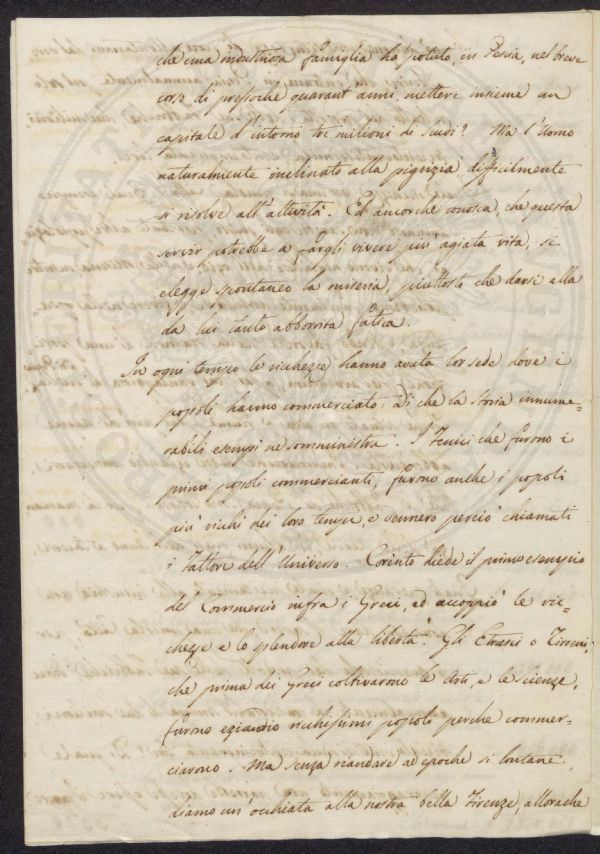 che una industriosa famiglia ha potuto, in Pescia, nel breve
corso di pressoche quarant'anni, mettere insieme un
capitale d'intorno tre milioni di scudi? Ma l'Uomo
naturalmente inclinato alla pigrizia difficilmente
si risolve all'attività. Ed ancorche conosca, che questa
servir potrebbe a fargli vivere più agiata vita, si
elegge spontaneo la miseria, piuttosto che darsi alla
da lui tanto abborrita fatica.
In ogni tempo le ricchezze hanno avuta lor sede dove i
popoli hanno commerciato. Di che la storia innume=
rabili esempi ne somministra. I Fenici che furono i
primi popoli commercianti, furono anche i popoli
più ricchi dei loro tempi, e vennero perciò chiamati
i Fattori dell'Universo. Corinto diede il primo esempio
del Commercio infra i Greci, ed accoppiò le ric=
chezze e lo splendore alla libertà. Gli Etrusci o Tirreni,
che prima dei Greci coltivarono le Arti, e le scienze,
furono eziandio ricchissimi popoli perche commer=
ciarono. Ma senza riandare ad epoche sì lontane,
diamo un'occhiata alla nostra bella Firenze, allorache